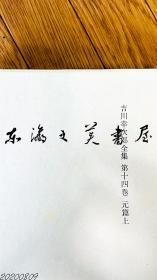 吉川幸次郎全集 第十四卷 元篇上
东瀛文英書屋
20200809